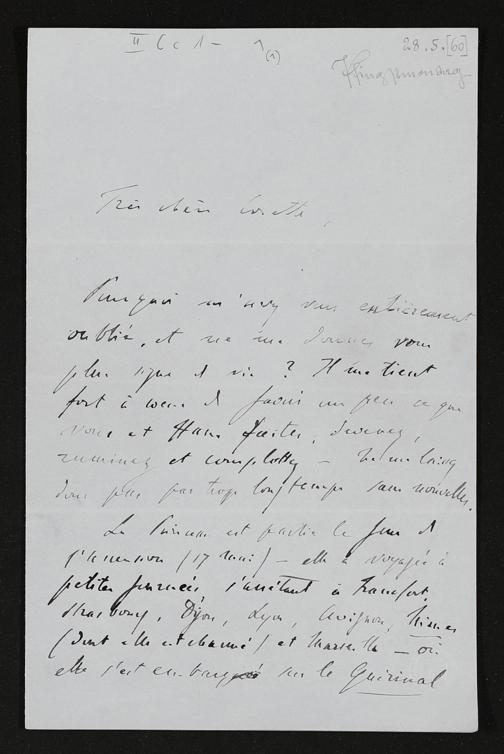 II C c 1 - 1 (1)
28.5.[60]
Très chère Cosette,
Pourquoi m'avez vous entièrement
oublié, et ne me donnez vous
plus signe de vie ? Il me tient
fort à coeur de savoir un peu ce que
vous et Hans faites, devenez,
ruminez et complottez – Ne me laissez
donc pas par trop longtemps sans nouvelles.
La Princesse est partie le jour de
l'ascension (17 Mai) – elle a voyagé à
petites journées, s'arrêtant à Francfort,
Strasbourg, Dijon, Lyon, Avignon, Nimes
(dont elle est charmée) et Marseille – où
elle s'est embarquée sur le Quirinal